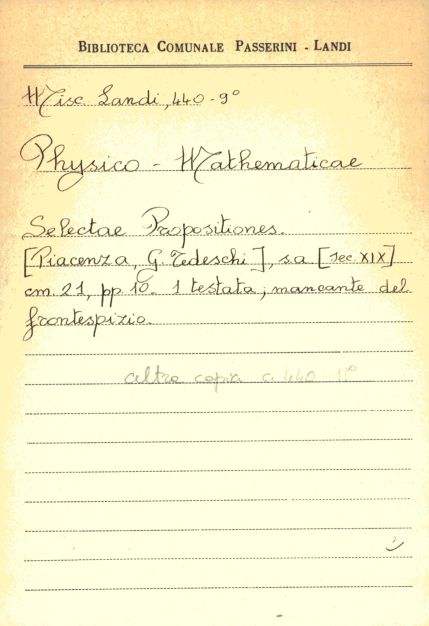 BIBLIOTECA COMUNALE PASSERINI - LANDI
Misc Landi, 440-9°
Physico - Mathematicae
Selectae Propositiones.
[Piacenza, G. Tedeschi], s.a [sec. XIX]
cm. 21, pp 10. 1 testata; mancante del
frontespizio.
altra copia a 440-11°